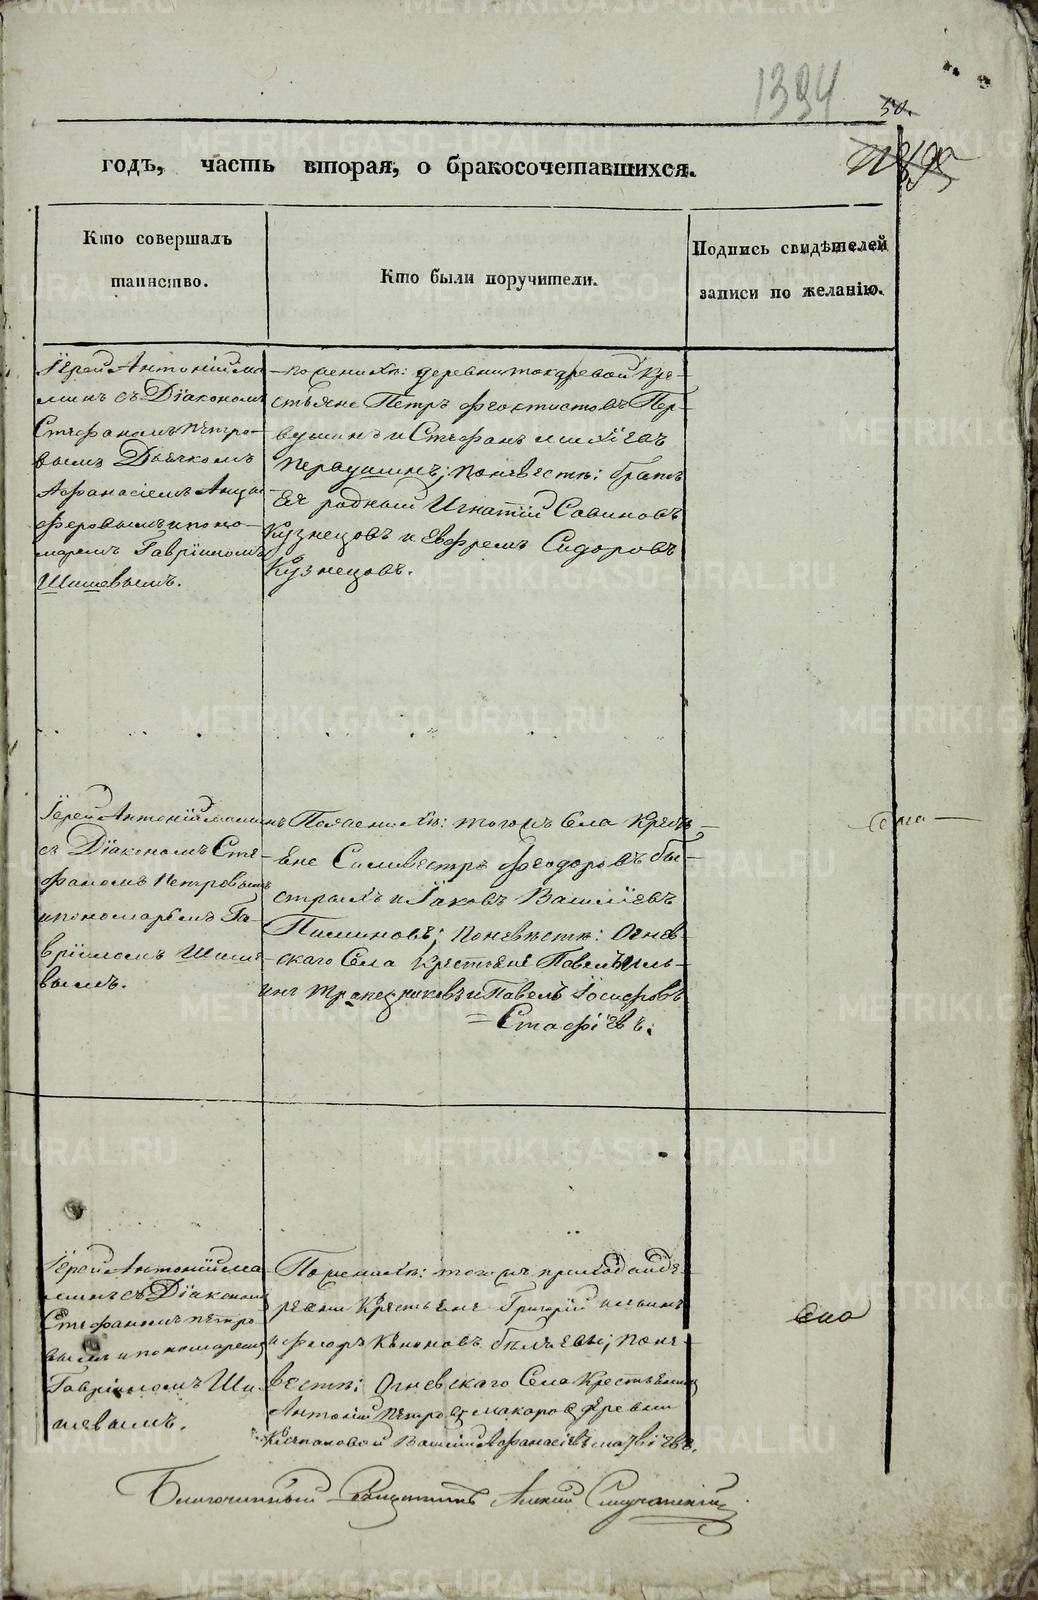 1394
50.
годъ, часть вторая, о бракосочетавшихся.
Кто совершалъ
таинство.
Кто были поручители.
Подпись свидѣтелей
записи по желанію.
Іерей Антоній Ма-
минъ съ Діакономъ
Стефаномъ Петро-
вымъ Дьячкомъ
Афанасіемъ Анцы-
феровымъ и поно-
маремъ Гавріиломъ
Шишевымъ.
По женихѣ: деревни токаревой Кре-
стьяне Петръ Феоктистовъ Пер-
вушинъ и Стефанъ
Первушинъ; по невестѣ: братъ
Ея родный Игнатій Савиновъ
Кузнецовъ и Евфремъ Сидоровъ
Кузнецовъ.
Іерей Антоній Маминъ
съ Діакономъ Сте-
фаномъ Петровымъ
и пономаремъ Га-
вріиломъ Шише-
вымъ.
По женихѣ: тогожъ Села Кресть-
яне Силивестръ Феодоровъ бы-
стрыхъ и Іаковъ Васильевъ
Пиминовъ; по невѣстѣ: Огнев-
скаго Села Крестьяне Павелъ Иль-
инъ Трапезниковъ и Павелъ Іосифовъ
Стафіевъ.
Іерей Антоній Ма-
минъ съ Діакономъ
Стефаномъ Петро-
вымъ и пономаремъ
Гавріиломъ Ши-
шевымъ.
По женихѣ: тогожъ прихода де-
ревни Крестьяне Григорій Ильинъ
и Флоръ Кононовъ; по не-
вестѣ: Огневскаго Села Крестьянинъ
Антоній Петровъ Макаровъ деревни
Василій Афанасіевъ
Благочинный Священникъ Алексій
METRIKI.GASO-URAL.RU